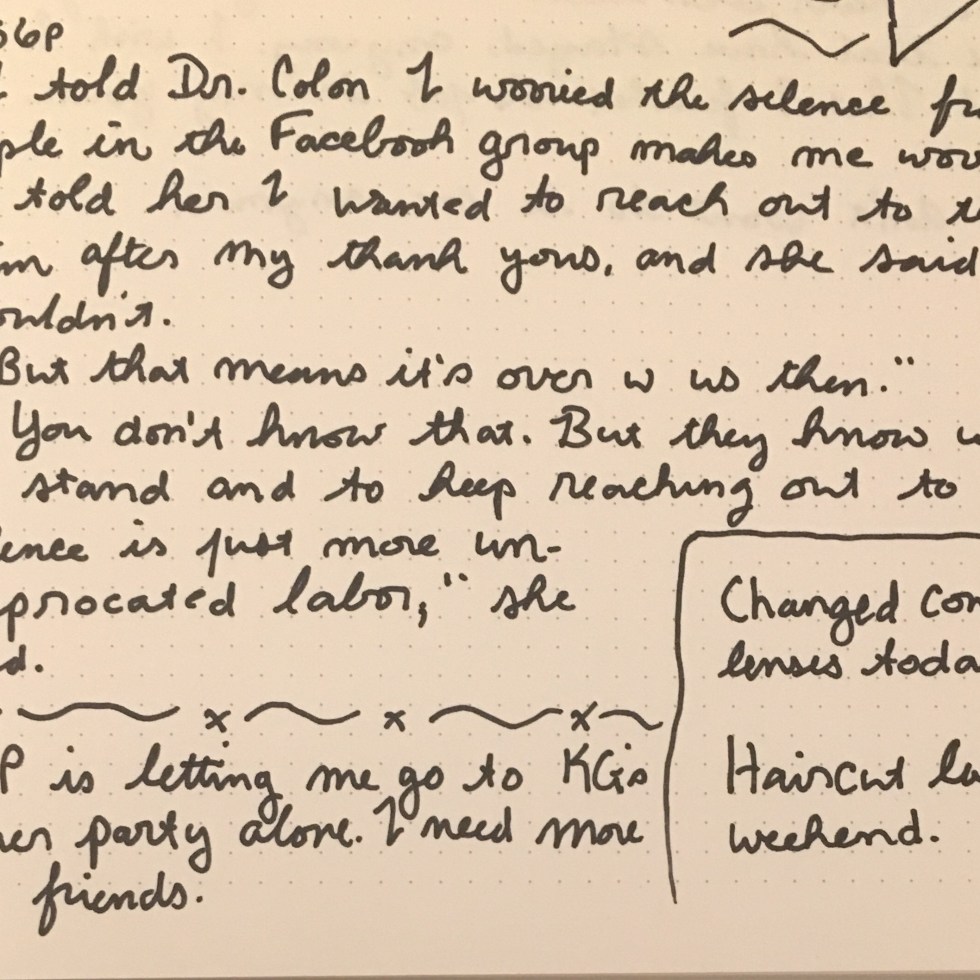 56P
I told Dr. Colon I worried the silence
in the Facebook group makes me
told her I wanted to reach out to
after my thank yous, and she said
But that means it's over w us then."
You don't know that. But they know
stand and to keep reaching out to
is just more un-
procated labor," she
d.
P is letting me go to KG's
party alone. I need more
friends.
Changed
lenses
Haircut
weekend.